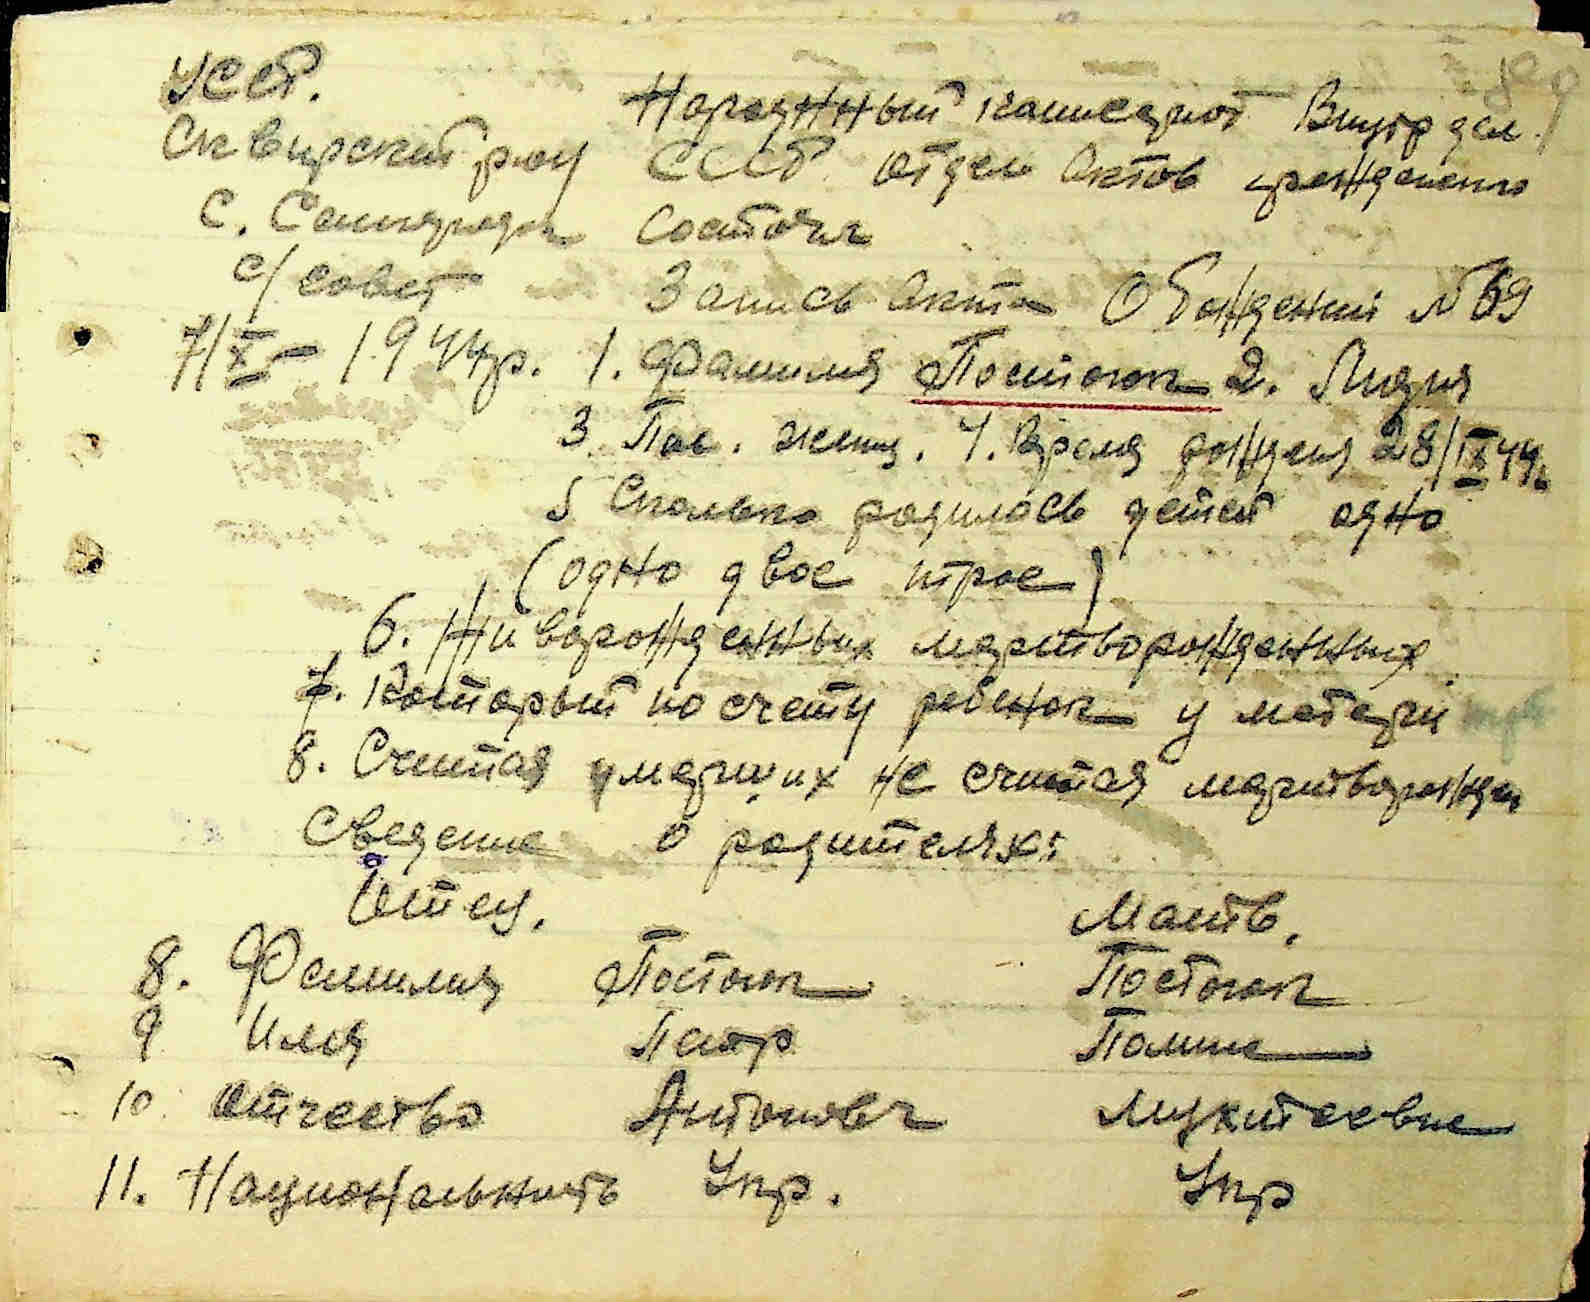 УССР. Народнный комиссариат Внутр дел.
Сквирский р-н СССР отдел Актов гражданско
С. Состояния
с/совет Запись Акта О Рождении №69
7/X – 1944 гр. 1. Фамилия Постоюк 2. Лидия
3. Пол. женщ. 4. Время рождения 28/IX 44 г.
5 Сколько родилось детей одно
(одно двое трое)
6. Живорожденных мертворожденных
7. Который по счету ребенок у матери
8. Считая умерших не считая мертворожден
Сведение о родителях:
Отец. Мать.
8. Фамилия Постоюк Постоюк
9 Имя Петр Полине
10. Отчество Антонович
11. Национальность Укр. Укр